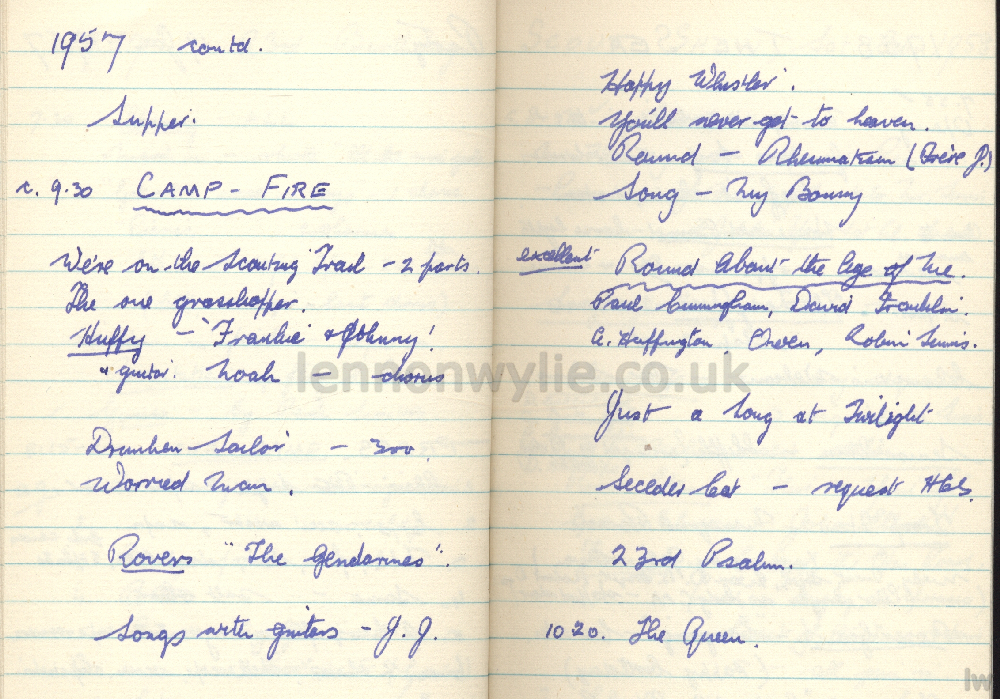 1957 contd.
Supper.
c. 9.30 CAMP-FIRE
We're on the Scouting Trail - 2 parts.
The one grasshopper.
Huffy - "Frankie & Johnny!
& guitar. Noah - chorus
Drunken Sailor - 300
Worried Man.
Rovers "The Gendarmes".
Songs with guitars - J. J.
Happy Whistler.
You'll never get to heaven.
Round - Rheumatism (Frère J.)
Song - My Bonny
excellent Round About the Age of Me.
Paul Cunningham, David Franklin.
A. Huffington, Owen, Robin
Just a Song at Twilight
Seceder Cat - request
23rd Psalm.
10 20. The Queen.
lennonwylie.co.uk
lw